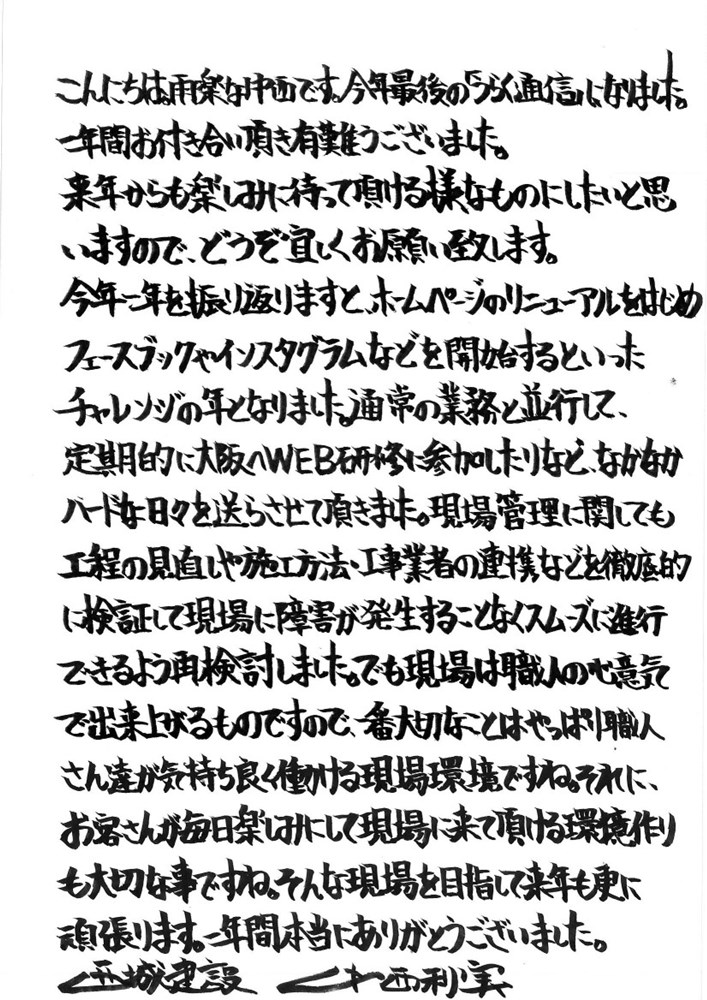 こんにちは。雨楽な中西です。今年最後の「うらく通信」になりました。
一年間お付き合い頂き有難うございました。
来年からも楽しみに待って頂ける様なものにしたいと思
いますので、どうぞ宜しくお願い致します。
今年一年を振り返りますと、ホームページのリニューアルをはじめ
フェースブックやインスタグラムなどを開始するといった
チャレンジの年となりました。通常の業務と並行して、
定期的に大阪へWEB研修に参加したりなど、なかなか
ハードな日々を送らさせて頂きました。現場管理に関しても
工程の見直しや施工方法・工事業者の連携などを徹底的
に検証して現場に障害が発生することなくスムーズに進行
できるよう再検討しました。でも現場は職人の心意気
で出来上がるものですので、一番大切なことはやっぱり職人
さん達が気持ち良く働かける現場環境ですね。それに、
お客さんが毎日楽しみにして現場に来て頂ける環境作り
も大切な事ですね。そんな現場を目指して来年も更に
頑張ります。一年間本当にありがとうございました。
城建設 西利実